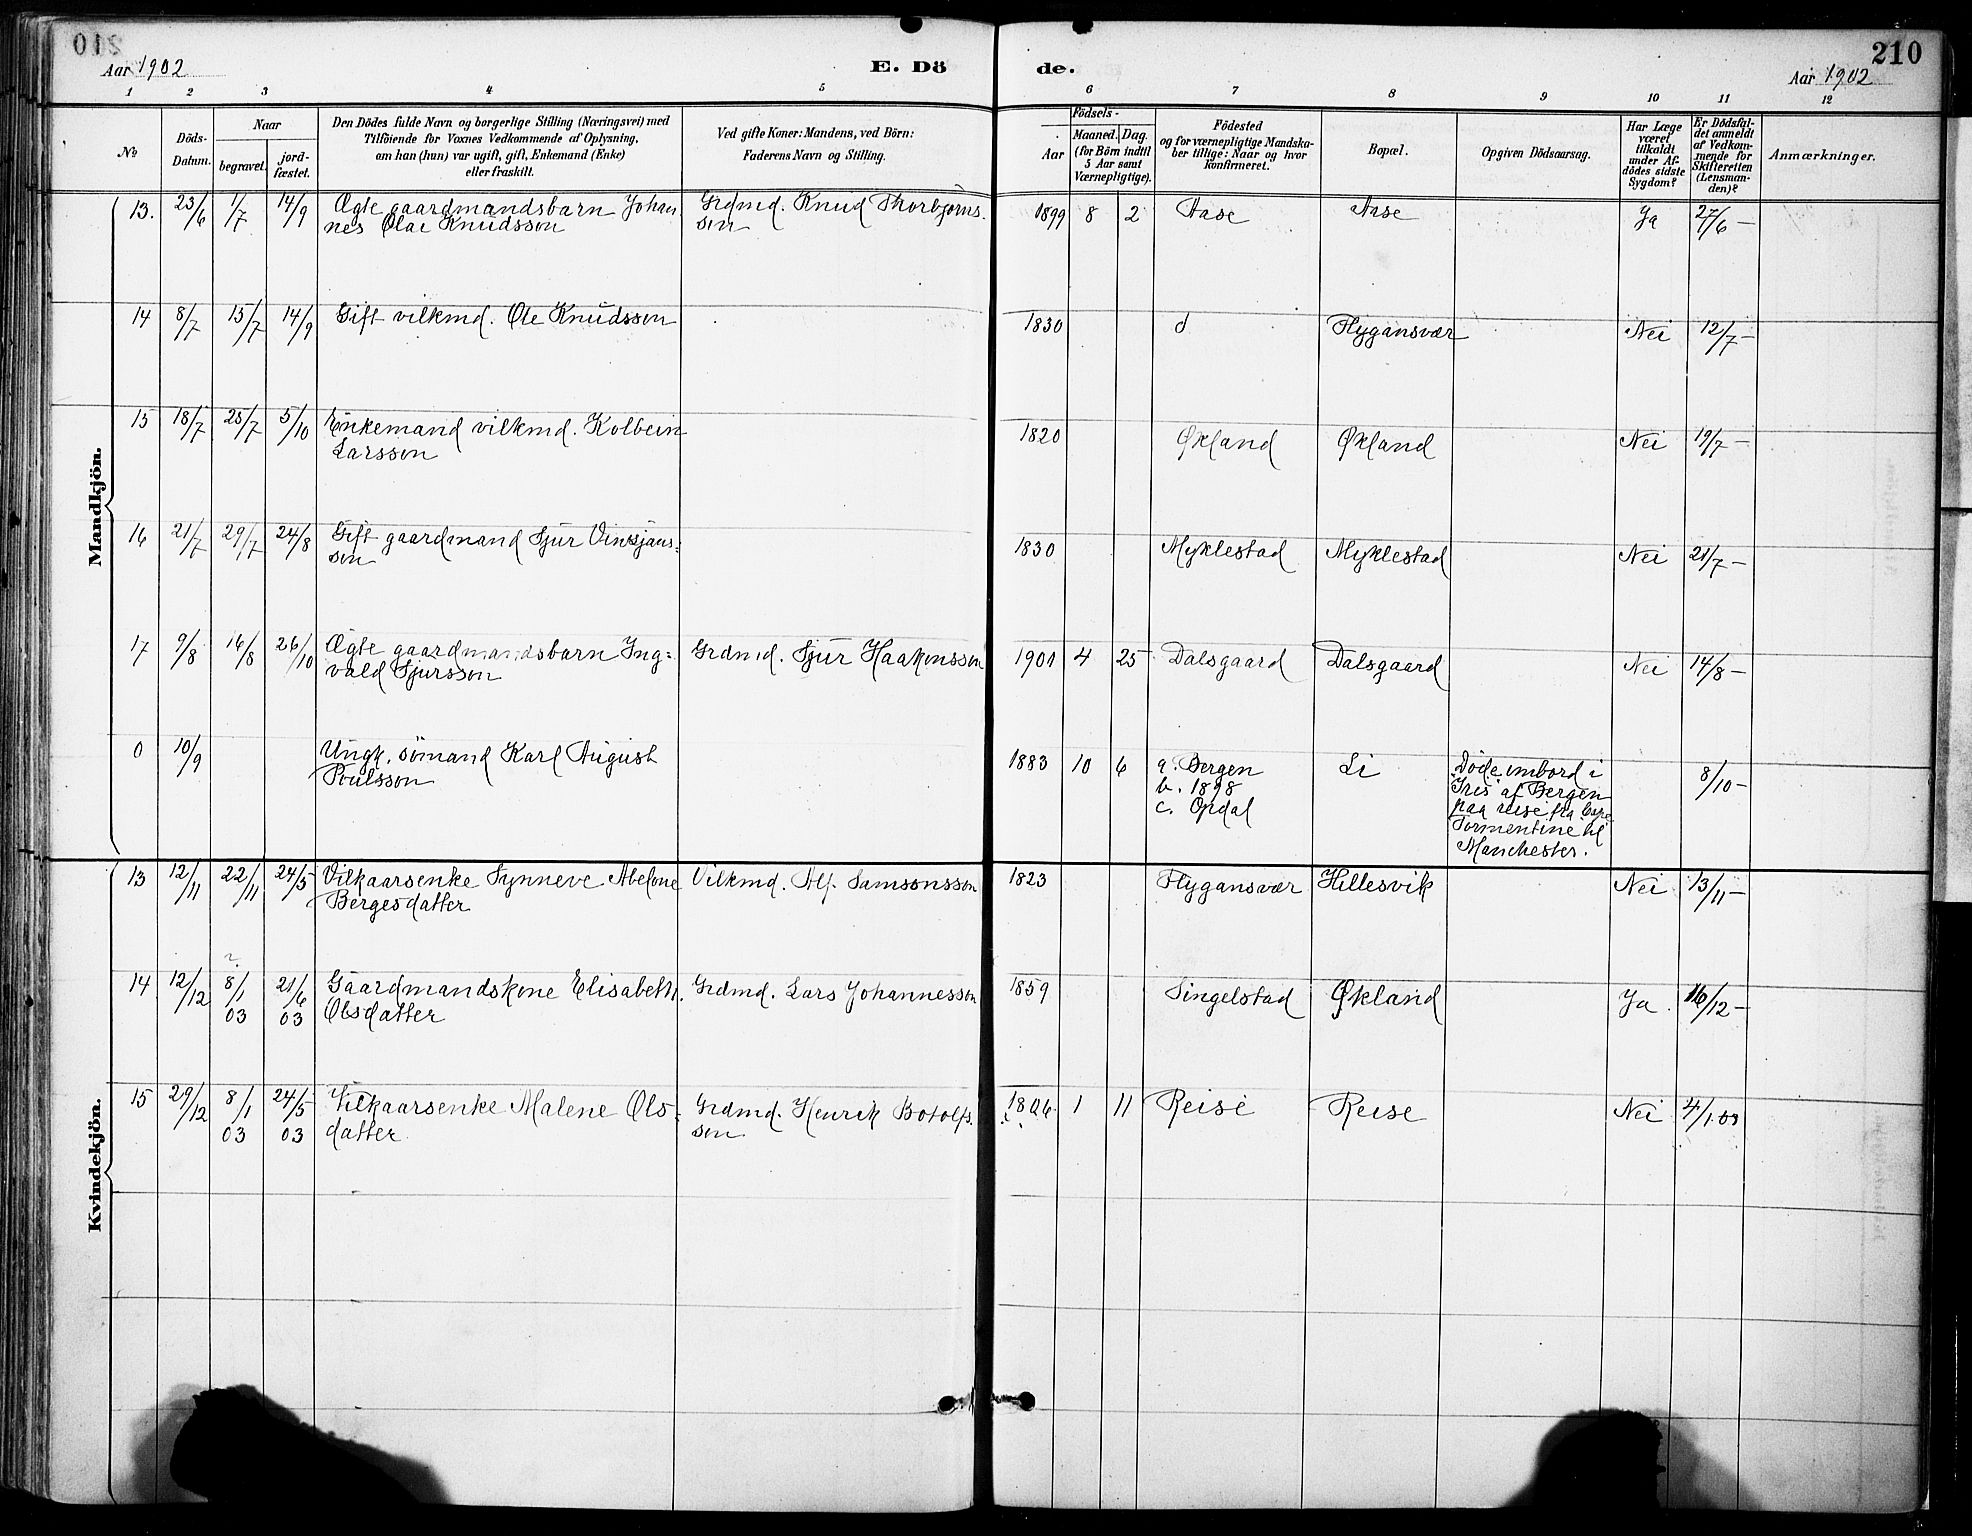 210
Aar 1902
E. Dö
de.
Aar 1902
210
1 2 3 4 5 6 7 8 9 10 11 12
No
Döds-
Datum.
Naar
begravet.
jord-
fæstet.
Den Dödes fulde Navn og borgerlige Stilling (Næringsvei) med
Tilföiende for Voxnes Vedkommende af Oplysning,
om han (hun) var ugift, gift, Enkemand (Enke)
eller fraskilt.
Ved gifte Koner: Mandens, ved Börn:
Faderens Navn og Stilling.
Födsels-
Aar
Maaned. Dag.
(for Börn indtil
5 Aar samt
Værnepligtige).
Födested
og for værnepligtige Mandska-
ber tillige: Naar og hvor
konfirmeret.
Bopæl.
Opgiven Dödsaarsag.
Har Læge
været
tilkaldt
under Af-
dödes sidste
Sygdom?
Er Dödsfal-
det anmeldt
af Vedkom-
mende for
Skifteretten
(Lensman-
den)?
Anmærkninger.
Mandkjön.
13. 23/6 1/7 14/9 Ægte gaardmandsbarn Johan Grdmd. Knud Thorbjørns- 1899 8 2 Aase Aase Ja 27/6 –
nes Olai Knudsson søn
14 8/7 15/7 14/9 Gift vilkmd. Ole Knudsson 1830 d Flygansvær Nei 12/7 –
15 18/7 25/7 5/10 Enkemand vilkmd. Kolbein 1820 Økland Økland Nei 19/7 –
Larsson
16 21/7 29/7 24/8 Gift gaardmand Sjur Vinsjans= 1830 Myklestad Myklestad Nei 21/7 –
søn
17 9/8 16/8 26/10 Ægte gaardmandsbarn Ing= Grdmd. Sjur Haakonsson 1901 4 25 Dalsgaard Dalsgaard Nei 14/8 –
vald Sjursson
0 10/9 Ungk. sömand Karl August 1883 10 6 a. Bergen Li Døde ombord i 8/10 –
Poulsson b. 1898 "Iris" af Bergen
c. Opdal paa reise fra Cape
Tormentine til
Manchester.
Kvindekjön.
13 12/11 22/11 24/5 Vilkaarsenke Synneve Abelone Vilkmd. Alf Samsonsson 1823 Flygansvær Hillesvik Nei 13/11 –
Bergesdatter
14 12/12 8/1 03 21/6 03 Gaardmandskone Elisabeth Grdmd. Lars Johannesson 1859 Singelstad Økland Ja 16/12 –
Olsdatter
15 29/12 8/1 03 24/5 03 Vilkaarsenke Malene Ols- Grdmd. Henrik Botolfs- 1826 1 11 Reise Reise Nei 4/1 03
datter søn